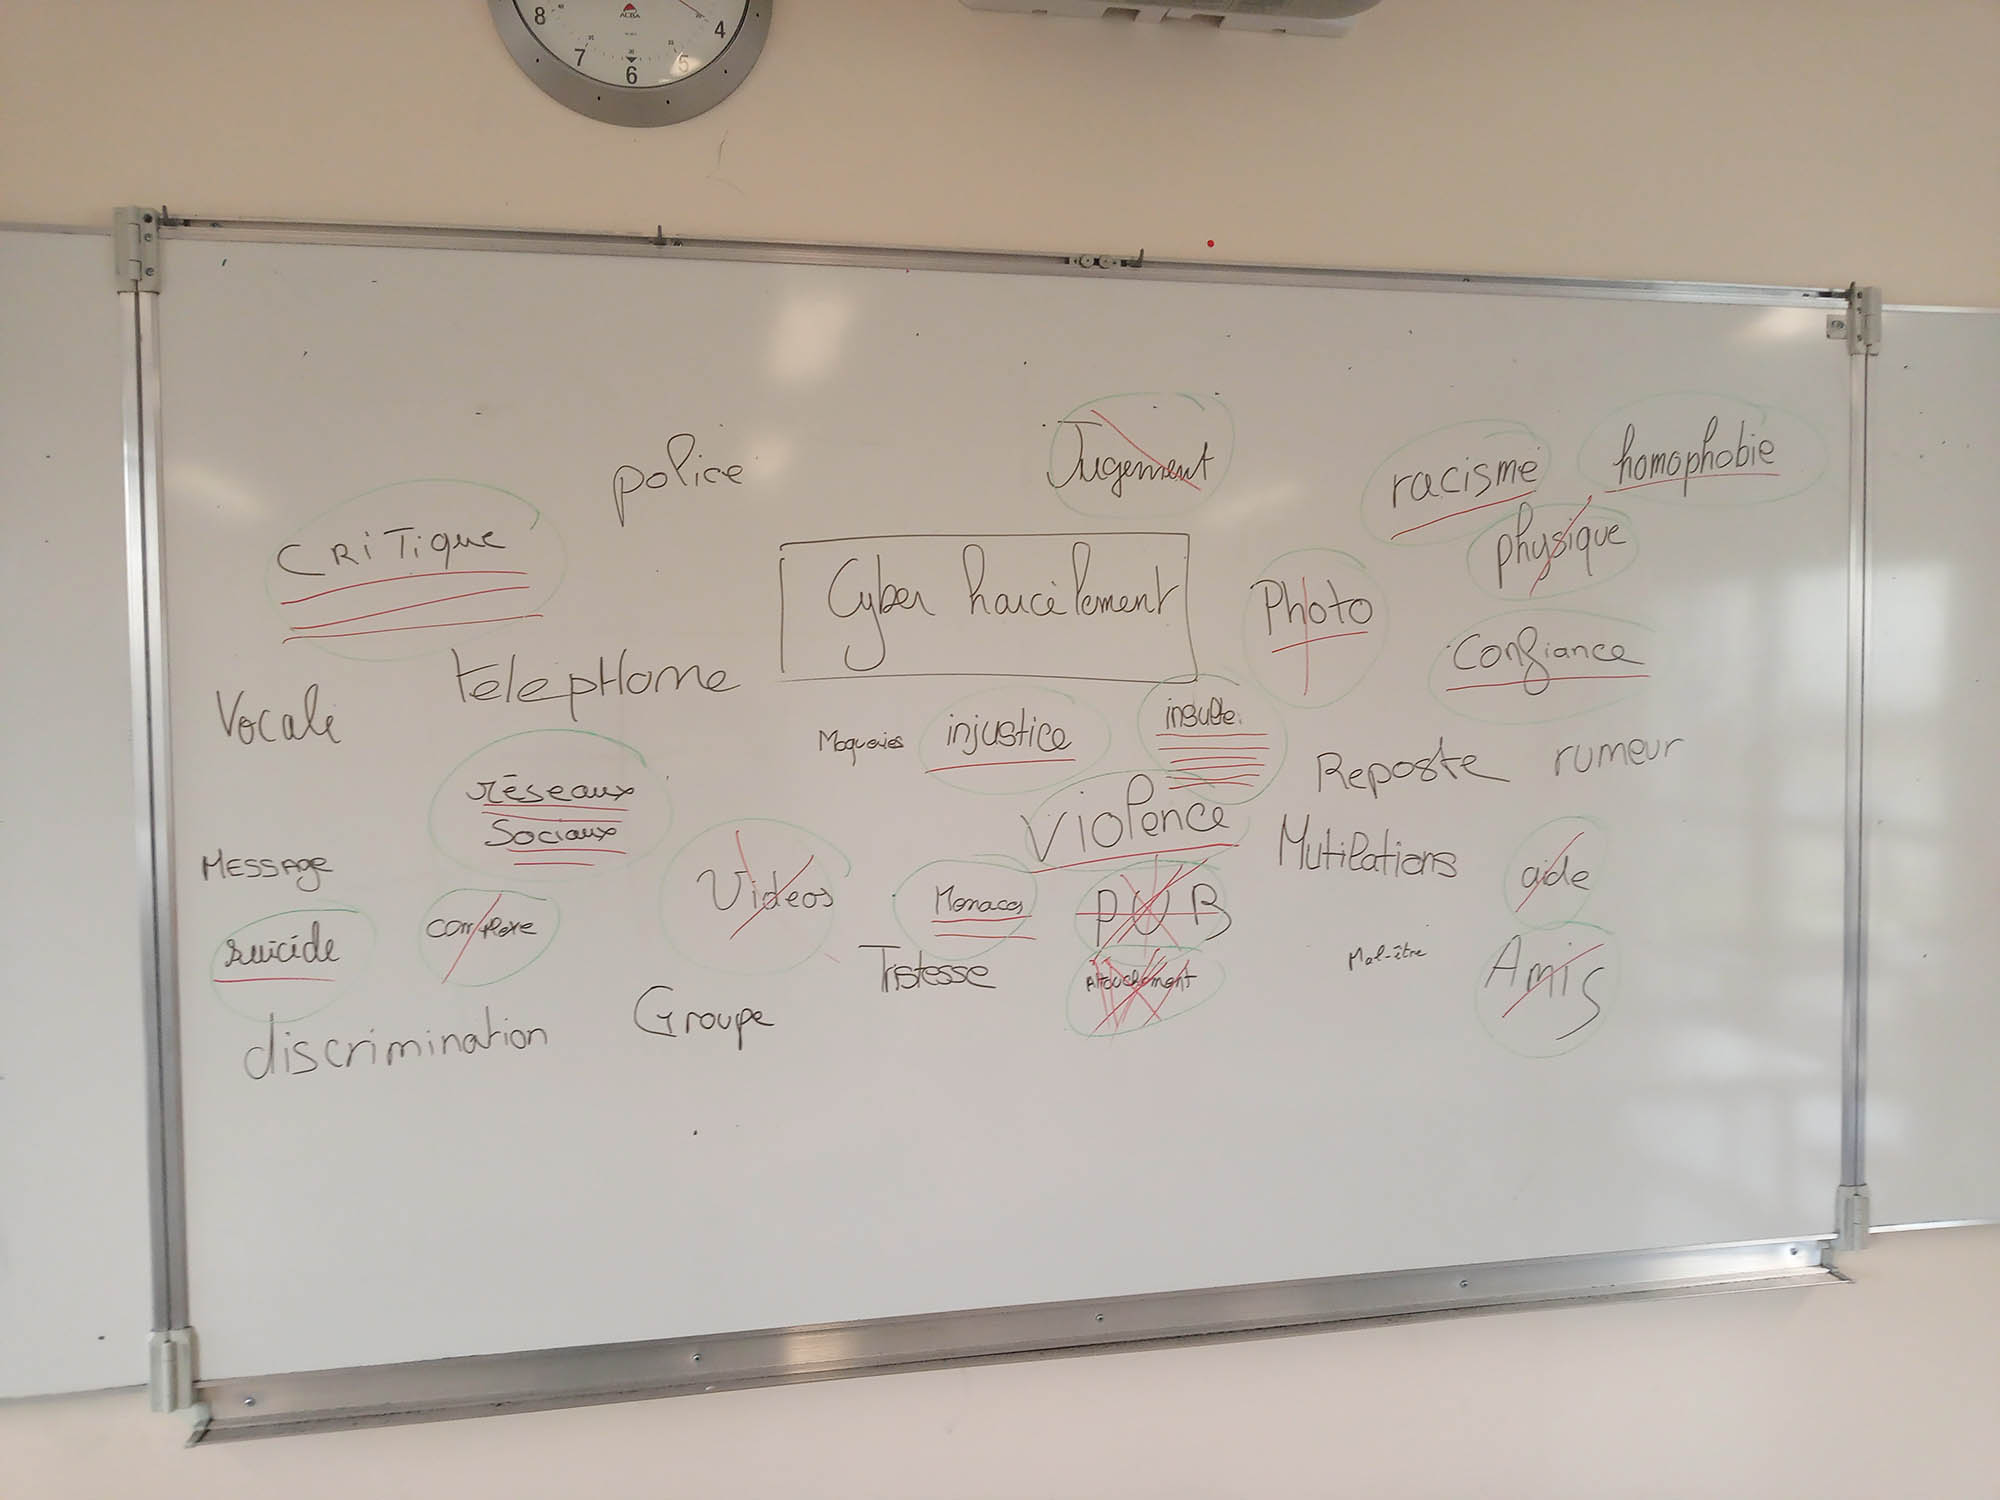 8
7
6
5
4
ACBA
police
Jugement
racisme
homophobie
CRiTique
physique
Cyber harcèlement
Photo
Confiance
télepHone
Vocale
Moqueries
injustice
insulte
Reposte
rumeur
réseaux
Sociaux
Violence
Mutilations
MESSAGE
Vidéos
Menaces
PUB
aide
suicide
complexe
Tristesse
Attouchement
Mal-être
Amis
discrimination
Groupe